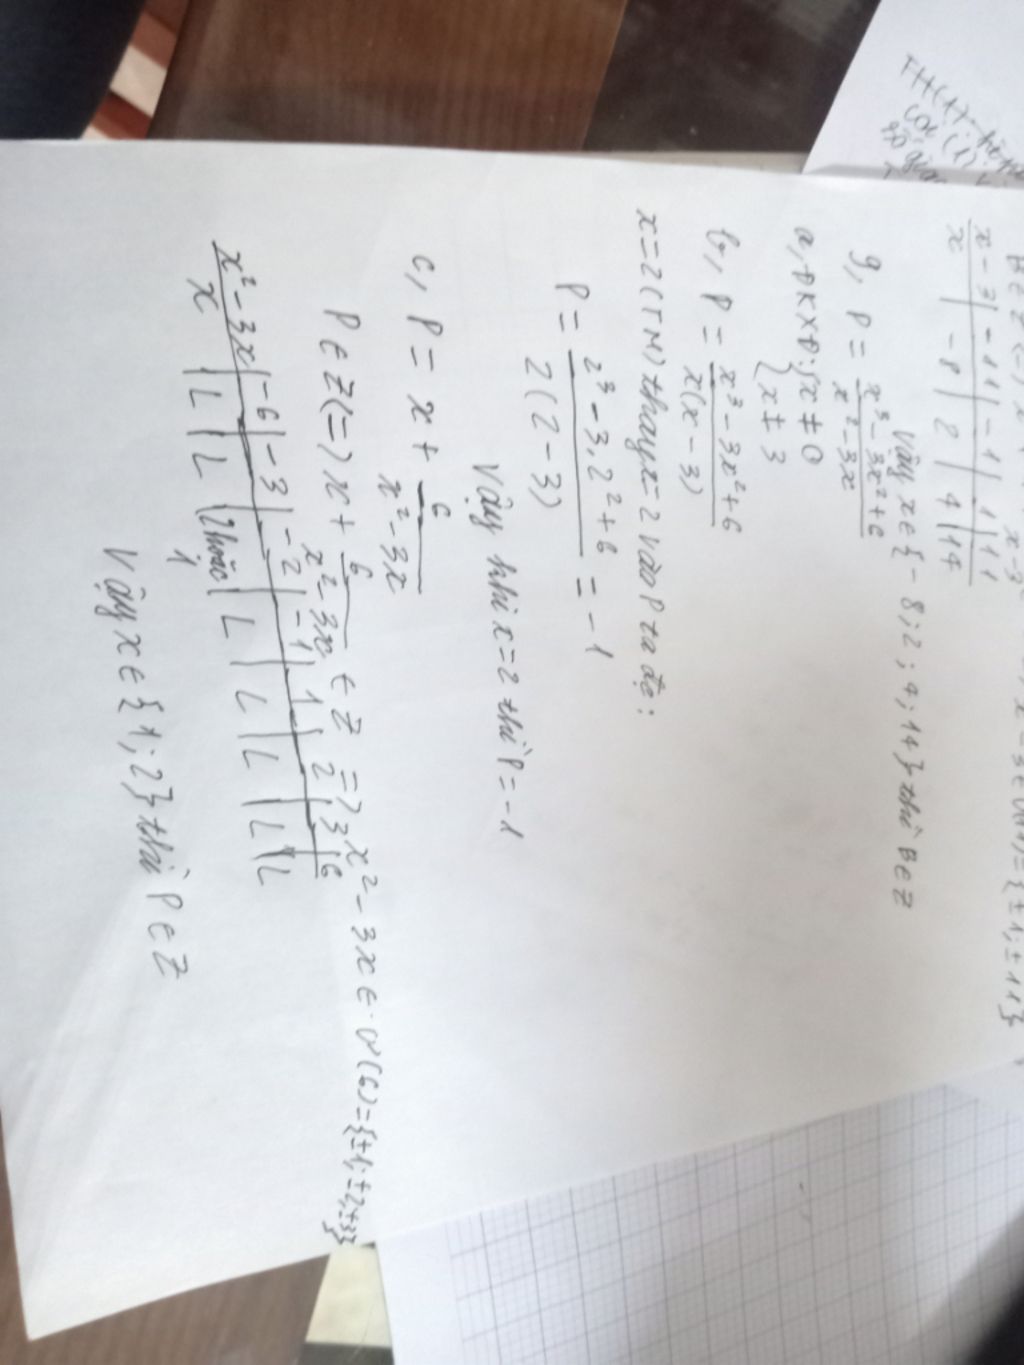 x-3 | -11 | -1 | 1 | 11
x | -8 | 2 | 4 | 14
Vậy x∈{-8;2;4;14} thì B∈Z
9, P = x³-3x²+6 / x²-3x
a, ĐKXĐ: {x≠0
{x≠3
b, P = x³-3x²+6 / x(x-3)
x=2(TM) thay x=2 vào P ta đc:
P = 2³-3.2²+6 / 2(2-3) = -1
Vậy khi x=2 thì P=-1
c, P = x + 6 / x²-3x
P∈Z(=) x + 6 / x²-3x ∈ Z =) x²-3x ∈ Ư(6)={±1;±2;±3}
x²-3x | -6 | -3 | -2 | -1 | 1 | 2 | 3 | 6
x | L | L | 2 hoặc 1 | L | L | L | L | L
Vậy x∈{1;2} thì P∈Z